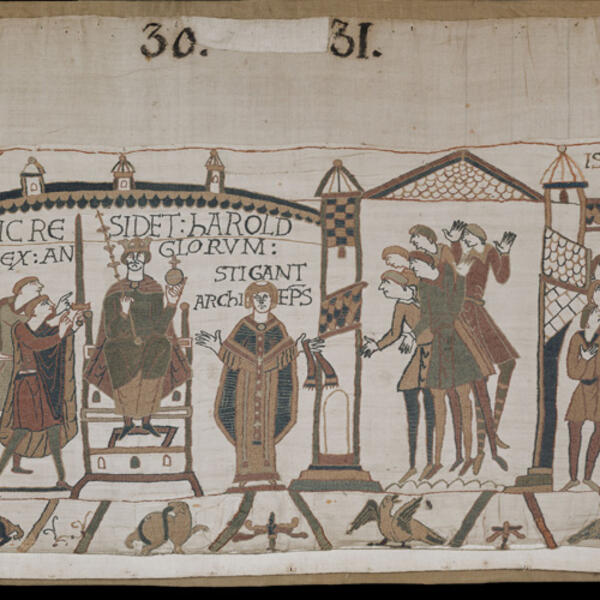 30. 31.
IC RE SIDET: hAROLD
EX: AN GLORVM:
STIGANT
ARChI EPS
IS